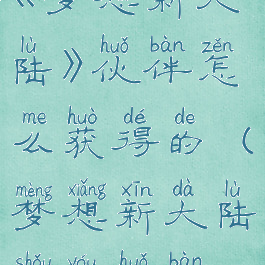 《梦想新大
lù huǒ bàn zěn
陆》伙伴怎
me huò dé de
么获得的（
mèng xiǎng xīn dà lù
梦想新大陆
shǒu yóu huǒ bàn